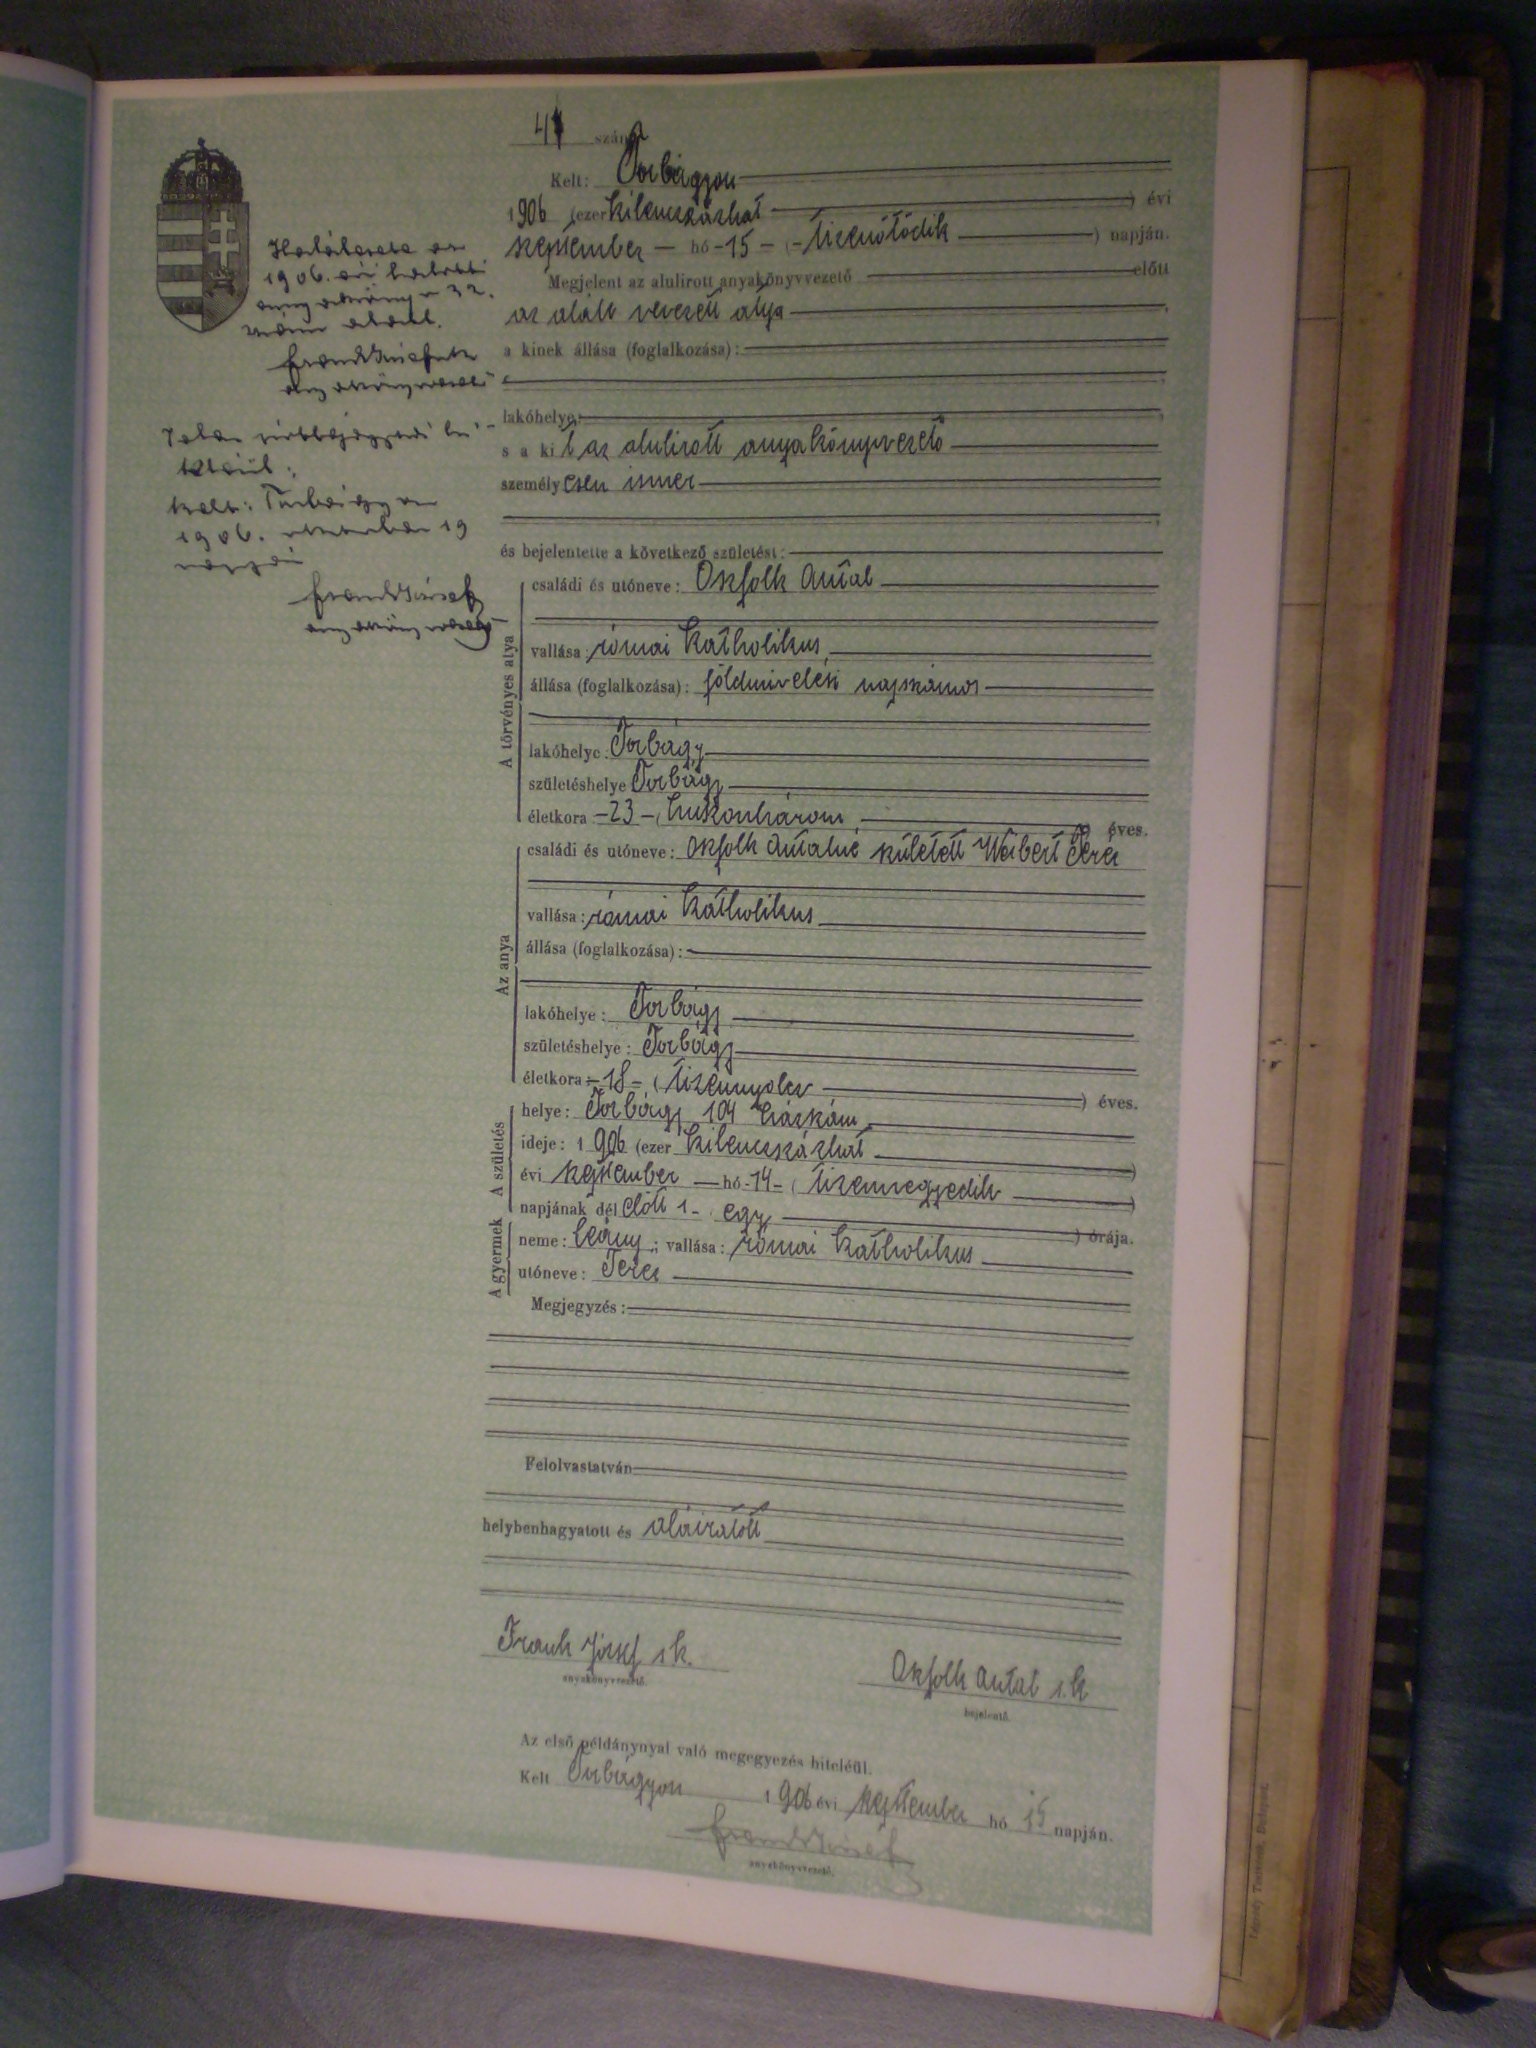 41 szám
Kelt: Torbágyon
1906 (ezer kilenczszázhat ) évi
szeptember hó -15- (-tizenötödik ) napján.
Megjelent az alulirott anyakönyvvezető előtt
az alább nevezett atya
a kinek állása (foglalkozása):
lakóhelye:
s a kit az alulirott anyakönyvvezető
személyesen ismer
és bejelentette a következő születést:
A törvényes atya
családi és utóneve: Okfolk Antal
vallása: római katholikus,
állása (foglalkozása): földmivelési napszámos
lakóhelye: Torbágy
születéshelye Torbágy
életkora -23- (huszonhárom ) éves.
Az anya
családi és utóneve: Okfolk Antalné született Weibert Teréz
vallása: római katholikus
állása (foglalkozása):
lakóhelye: Torbágy
születéshelye: Torbágy
életkora: -18- (tizennyolcz ) éves.
A születés
helye: Torbágy 104 házszám
ideje: 1906 (ezer kilenczszázhat )
évi szeptember hó -14- (tizennegyedik )
napjának dél előtt 1- egy ) órája.
A gyermek
neme: leány; vallása: római katholikus
utóneve: Teréz
Megjegyzés:
Felolvastatván
helybenhagyatott és aláiratott
Frank József s.k.
anyakönyvvezető.
Okfolk Antal s.k
bejelentő.
Az első példánynyal való megegyezés hiteléül.
Kelt Torbágyon 1906 évi szeptember hó 15 napján.
Frank József
anyakönyvvezető.
Halálesete az
1906. évi halotti
anyakönyv 32.
szám alatt.
Frank József
anyakönyvvezető
Jelen utólagos bejegyzés hi-
teléül:
kelt: Torbágyon
1906. október 19
napján
Frank József
anyakönyvvezető